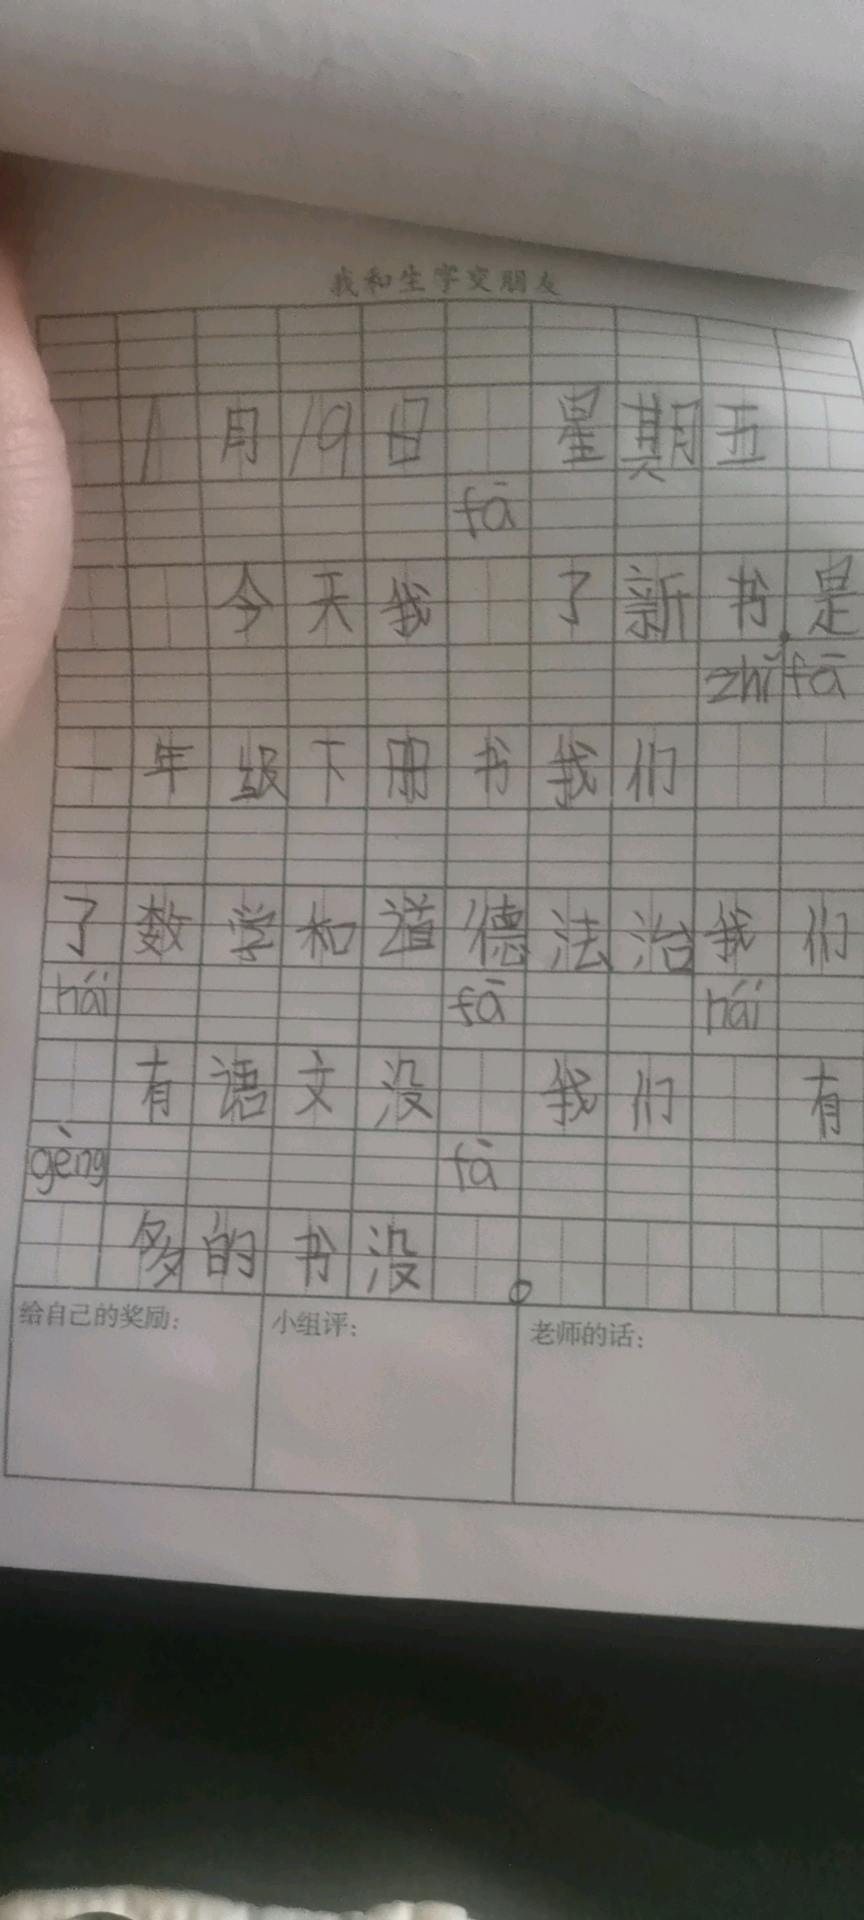 我和生字交朋友
1月19日 星期五
fā
今天我 了新书.是
zhǐ fā
一年级下册书我们
了数学和道德法治我们
hái fā hái
有语文没 我们 有
gèng fā
多的书没 。
给自己的奖励： 小组评： 老师的话：